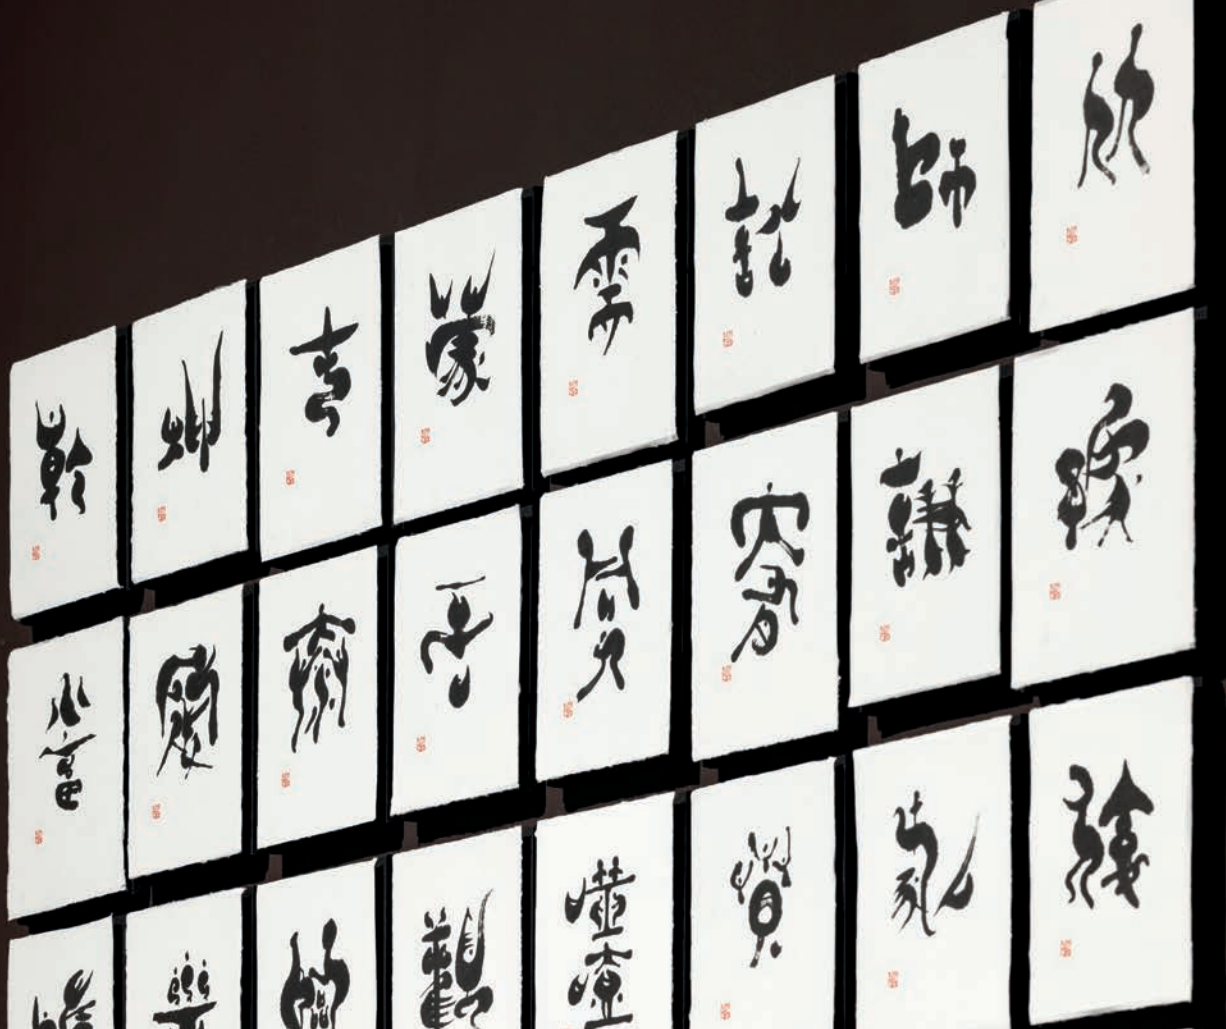 乾 坤 屯 蒙 需 訟 師 比
小畜 履 泰 否 同人 大有 謙 豫
隨 蠱 臨 觀 噬嗑 賁 剝 復